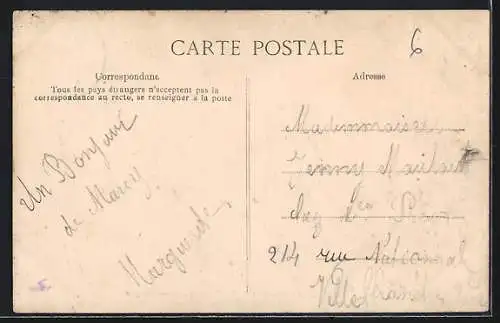 CARTE POSTALE
6
Correspondance
Tous les pays étrangers n'acceptent pas la
correspondance au recto, se renseigner à la poste
Un Bonjour
de Marcy
Marguerite
Adresse
Mademoiselle
Jenny
214 rue National
Villefranche